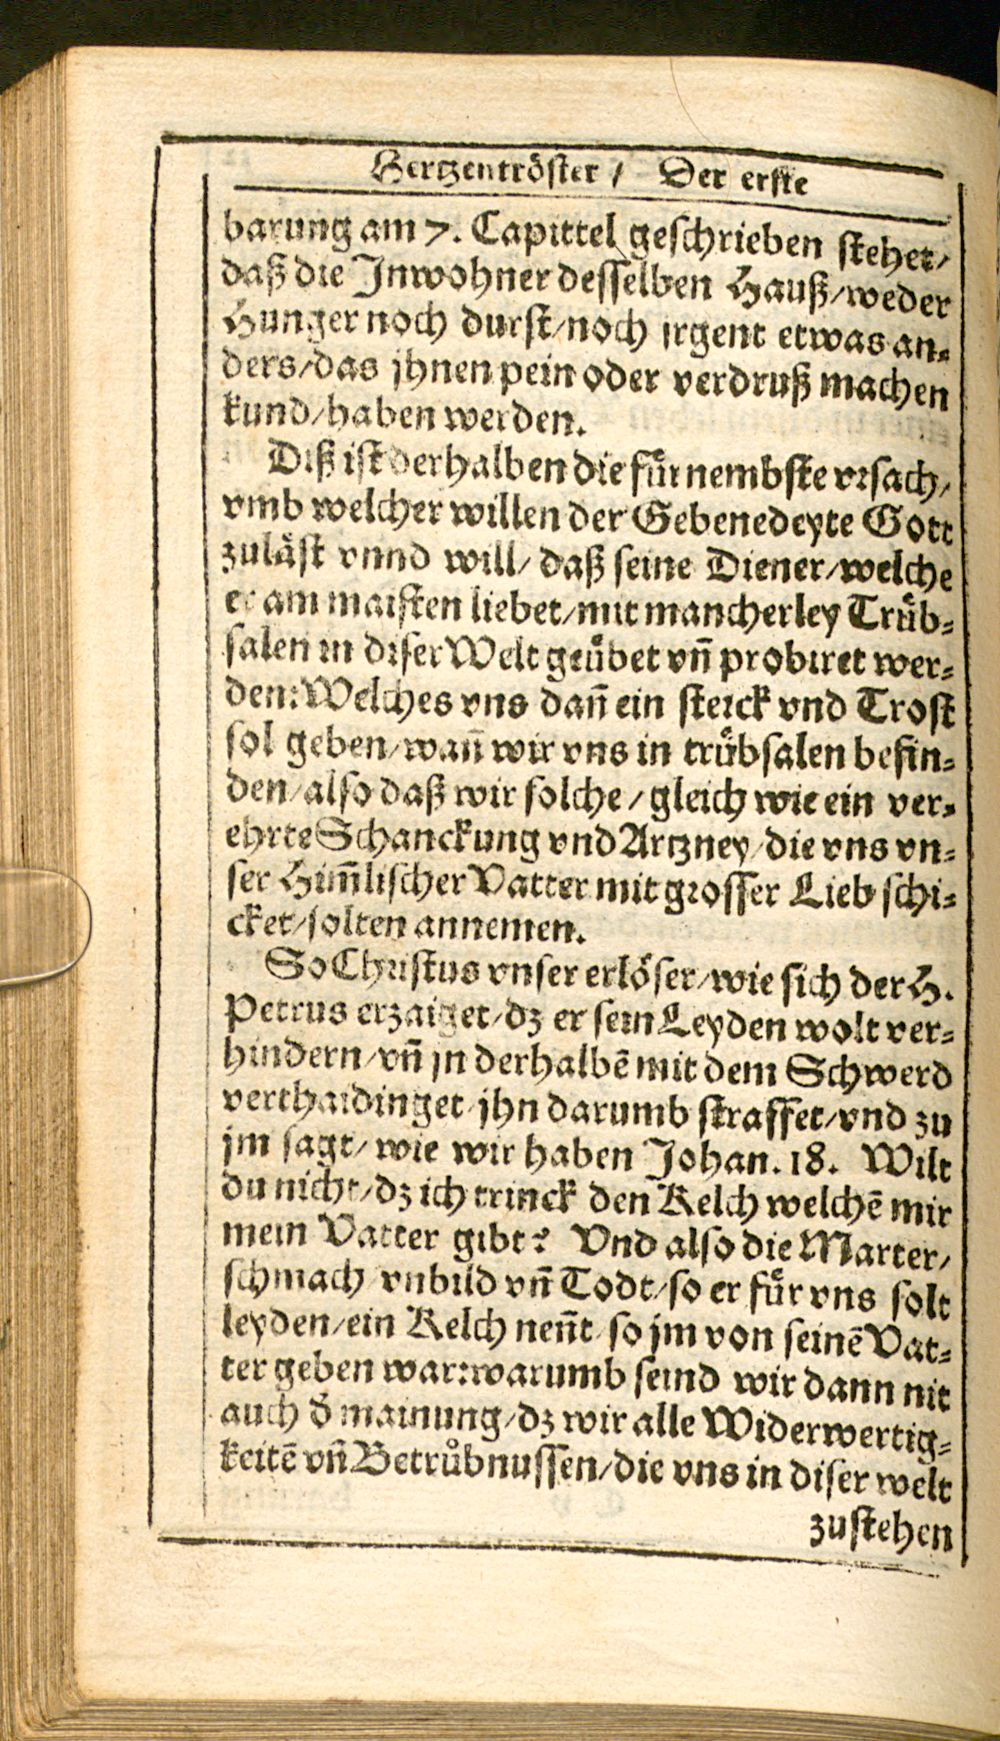 Hertzentröster / Der erste
barung am 7. Capittel geschrieben stehet/
daß die Jnwohner desselben Hauß/weder
Hunger noch durst/noch jrgent etwas an⸗
ders/das jhnen pein oder verdruß machen
kund/haben werden.
Diß ist derhalben die fürnembste vrsach/
vmb welcher willen der Gebenedeyte Gott
zuläst vnnd will/ daß seine Diener/welche
er am maisten liebet/mit mancherley Trüb⸗
salen in diser Welt geübet vn̄ probiret wer⸗
den: Welches vns dan̄ ein sterck vnd Trost
sol geben/wan̄ wir vns in trübsalen befin⸗
den/also daß wir solche/gleich wie ein ver⸗
ehrte Schanckung vnd Artzney/die vns vn⸗
ser Him̄lischer Vatter mit grosser Lieb schi⸗
cket/solten annemen.
So Christus vnser erlöser/wie sich der H.
Petrus erzaiget/dz er sein Leyden wolt ver⸗
hindern/vn̄ jn derhalbē mit dem Schwerd
verthaidinget jhn darumb straffet/vnd zu
jm sagt/ wie wir haben Johan. 18. Wilt
du nicht/dz ich trinck den Kelch welchē mir
mein Vatter gibt? Vnd also die Marter/
schmach/vnbild vn̄ Todt/so er für vns solt
leyden/ein Kelch nen̄t/so jm von seinē Vat⸗
ter geben war: warumb seind wir dann nit
auch d̕ mainung/dz wir alle Widerwertig⸗
keitē vn̄ Betrůbnussen/die vns in diser welt
zustehen